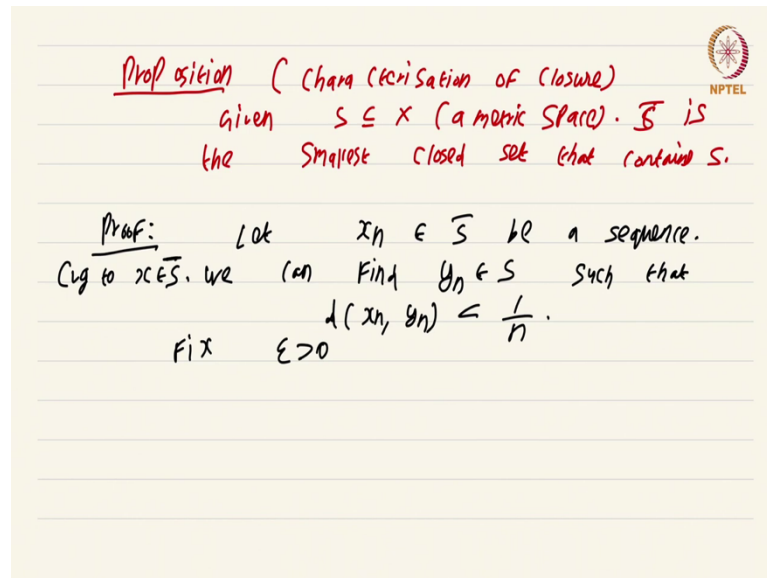 Proposition (Characterisation of closure)
NPTEL
Given S ⊆ X (a metric space). S̅ is
the smallest closed set that contains S.
Proof: Let xn ∈ S̅ be a sequence.
Cvg to x∈S̅. We can find yn ∈ S such that
d(xn, yn) < 1/n.
Fix ε>0